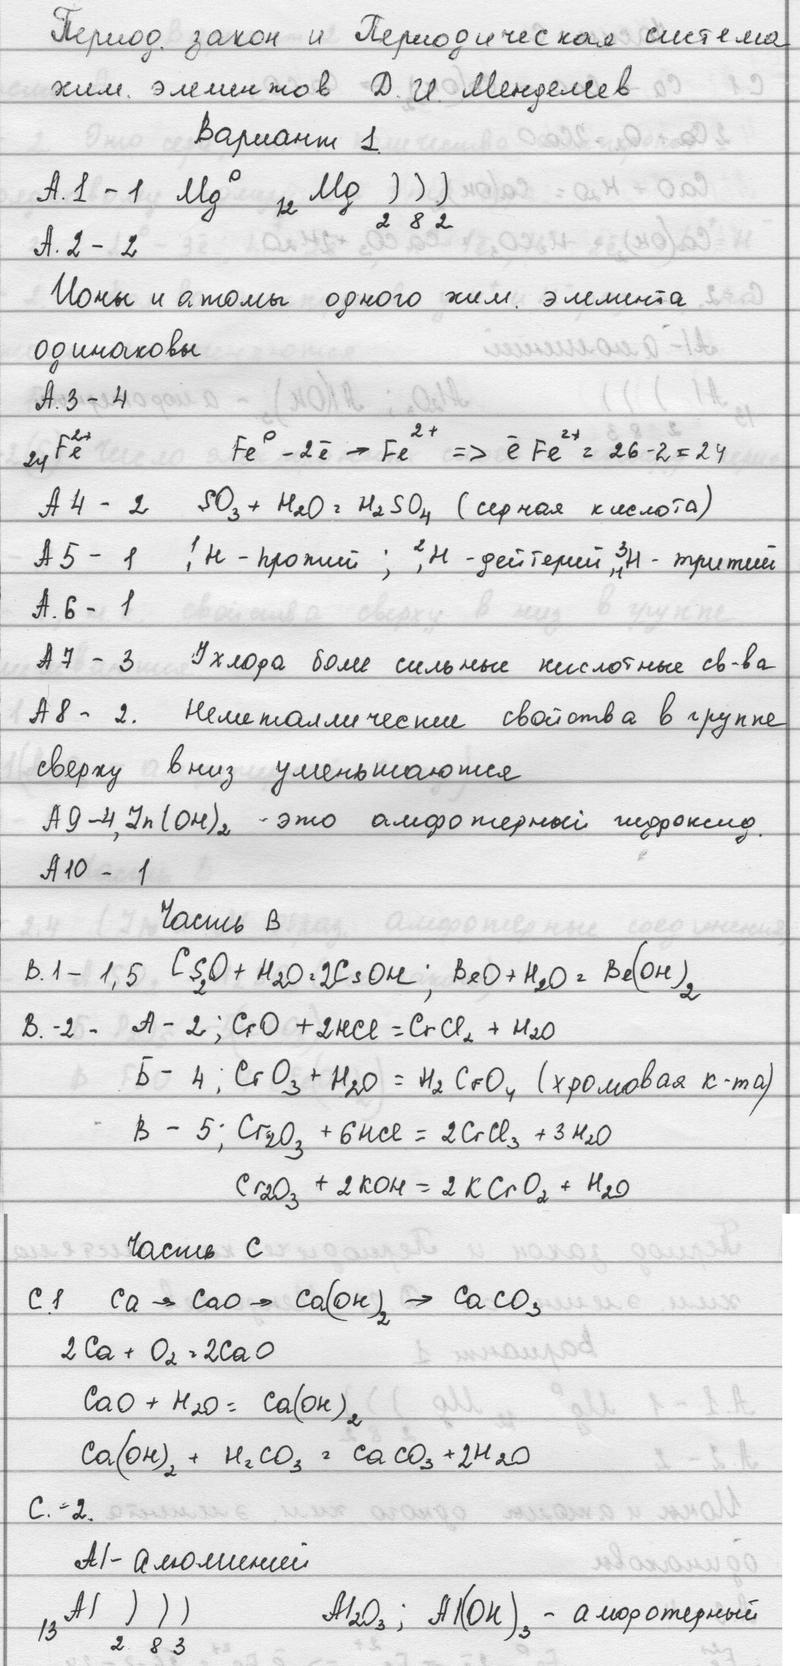 Период. закон и Периодическая система
хим. элементов Д. И. Менделеев
Вариант 1
А.1 - 1 Mg⁰ ₁₂Mg ) ) )
2 8 2
А.2 - 2
Ионы и атомы одного хим. элемента
одинаковы
А.3 - 4
₂₄Fe²⁺ Fe⁰ - 2ē → Fe²⁺ => ē Fe²⁺ = 26-2=24
А4 - 2 SO₃ + H₂O = H₂SO₄ (серная кислота)
А5 - 1 ¹₁H - протий ; ²₁H - дейтерий, ³₁H - тритий
А.6 - 1
А7 - 3 У хлора боле сильные кислотные св-ва
А8 - 2. Неметаллические свойства в группе
сверху вниз уменьшаются
А9 - 4, Zn(OH)₂ - это амфотерный гидроксид.
А10 - 1
Часть В
В.1 - 1,5 Cs₂O + H₂O = 2CsOH ; BeO + H₂O = Be(OH)₂
В.-2 - А - 2 ; CrO + 2HCl = CrCl₂ + H₂O
Б - 4 ; CrO₃ + H₂O = H₂CrO₄ (хромовая к-та)
В - 5 ; Cr₂O₃ + 6HCl = 2CrCl₃ + 3H₂O
Cr₂O₃ + 2KOH = 2KCrO₂ + H₂O
Часть С
С.1 Ca → CaO → Ca(OH)₂ → CaCO₃
2Ca + O₂ = 2CaO
CaO + H₂O = Ca(OH)₂
Ca(OH)₂ + H₂CO₃ = CaCO₃ + 2H₂O
С.-2.
Al - алюминий
₁₃Al ) ) ) Al₂O₃ ; Al(OH)₃ - амфотерный
2 8 3